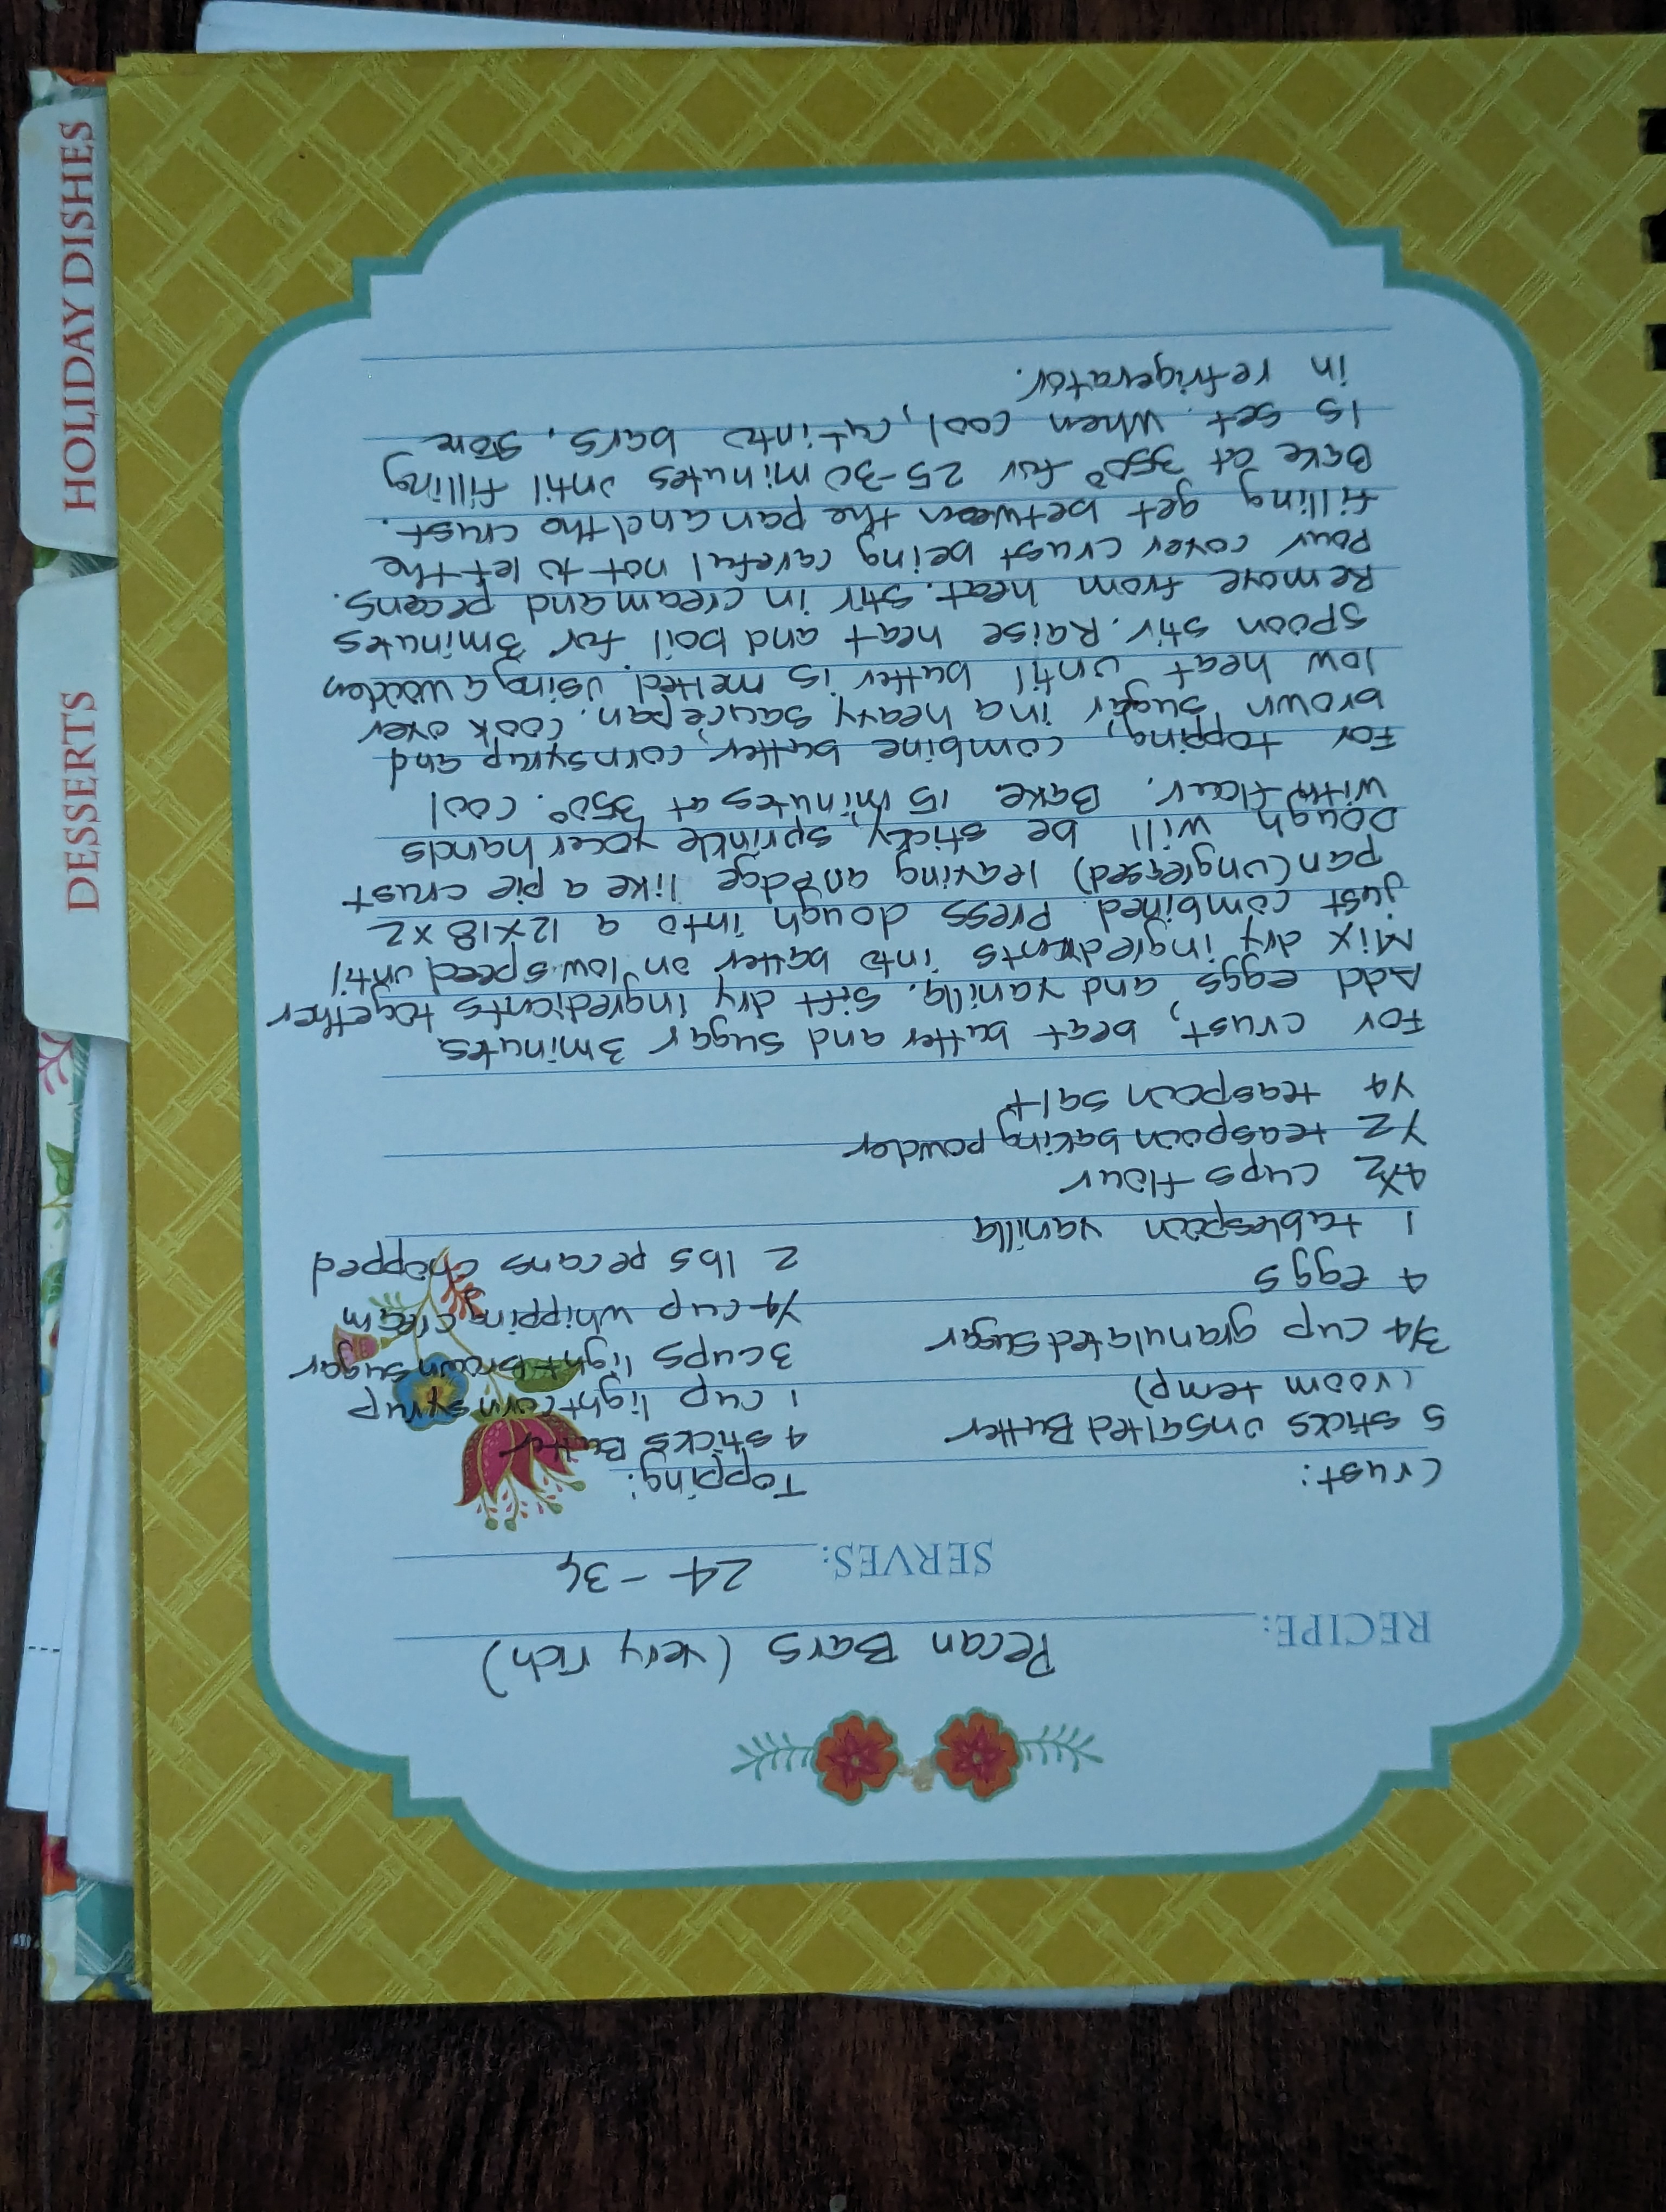 RECIPE: Pecan Bars (very rich)
SERVES: 24-36
Crust:
5 sticks unsalted Butter
(room temp)
3/4 cup granulated sugar
4 eggs
1 tablespoon vanilla
4 1/2 cups flour
1/2 teaspoon baking powder
1/4 teaspoon salt
Topping:
4 sticks Butter
1 cup light corn syrup
3 cups light brown sugar
1/4 cup whipping cream
2 lbs pecans chopped
For crust, beat butter and sugar 3 minutes
Add eggs and vanilla. Sift dry ingredients together
Mix dry ingredients into batter on low speed until
just combined. Press dough into a 12x18x2
pan (ungreased) leaving an edge like a pie crust
Dough will be sticky, sprinkle your hands
with flour. Bake 15 minutes at 350°. Cool
For topping, combine butter, corn syrup and
brown sugar in a heavy saucepan. Cook over
low heat until butter is melted. Using a wooden
spoon stir. Raise heat and boil for 3 minutes
Remove from heat. Stir in cream and pecans.
Pour cover crust being careful not to let the
filling get between the pan and the crust.
Bake at 350° for 25-30 minutes until filling
is set. When cool, cut into bars, store
in refrigerator.
DESSERTS
HOLIDAY DISHES